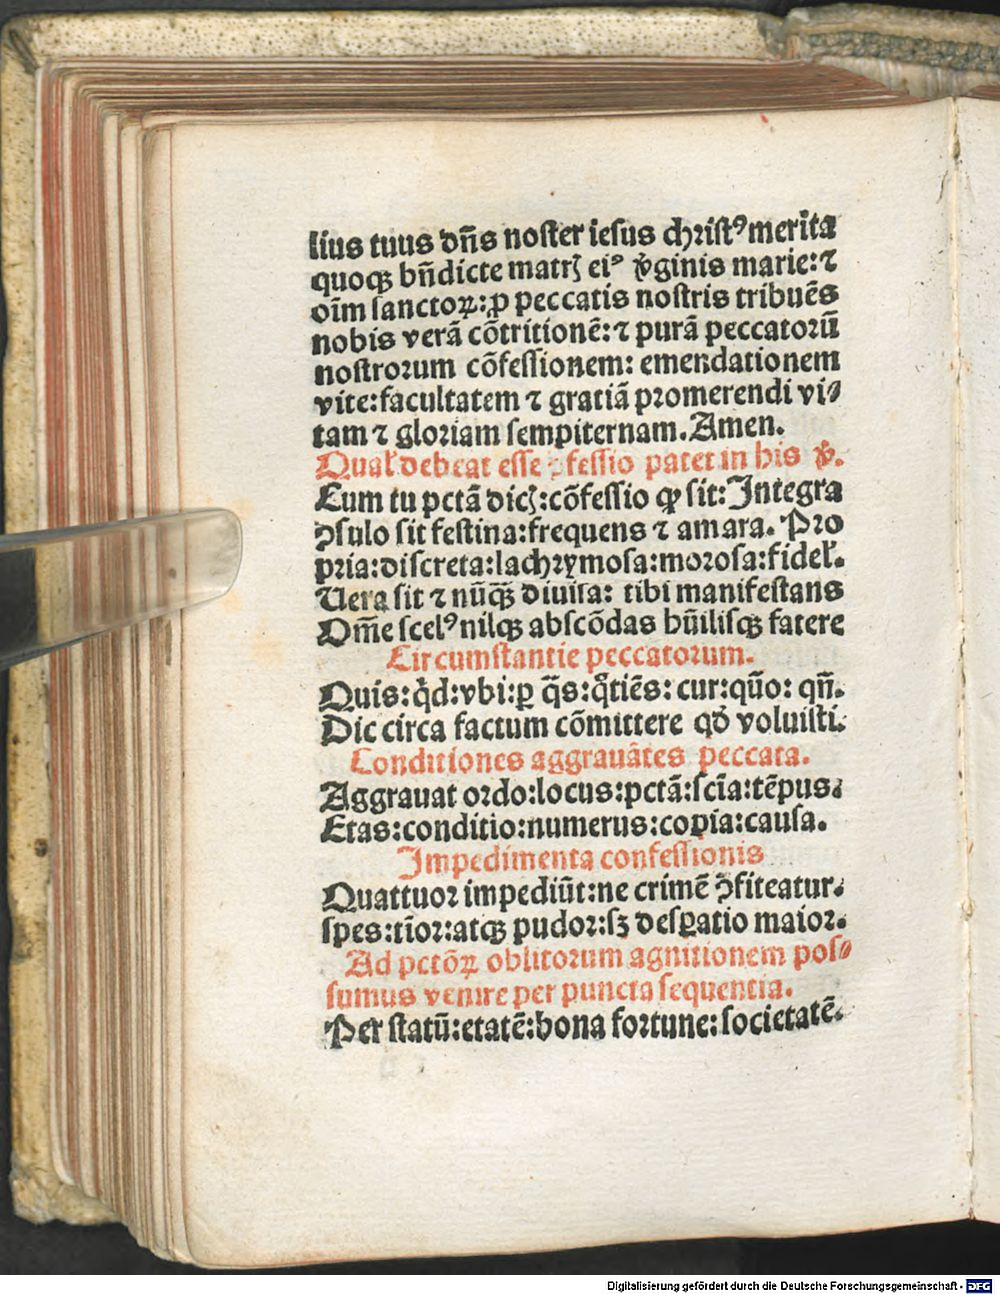 lius tuus dn̄s noster iesus christꝰ merita
quoqꝫ bn̄dicte matrꝭ eiꝰ v̓ginis marie: ⁊
oīm sanctoꝝ: ꝓ peccatis nostris tribuēs
nobis verā cōtritionē: ⁊ purā peccatorū
nostrorum cōfessionem: emendationem
vite: facultatem ⁊ gratiā promerendi vi⸗
tam ⁊ gloriam sempiternam. Amen.
Qual̓ debeat esse ꝯfessio patet in his v̓.
Cum tu pctā dicꝭ: cōfessio ꝙ sit: Integra
ꝯsulo sit festina: frequens ⁊ amara. Pro
pria: discreta: lachrymosa: morosa: fidel̓.
Uera sit ⁊ nūqꝫ̄ diuisa: tibi manifestans
Om̄e scelꝰ nilqꝫ abscōdas hūilisqꝫ fatere
Circumstantie peccatorum.
Quis: qͥd: vbi: ꝑ q̄s: qͦtiēs: cur: quō: qn̄.
Dic circa factum cōmittere qd̓ voluisti.
Conditiones aggrauātes peccata.
Aggrauat ordo: locus: pctā: scīa: tēpus.
Etas: conditio: numerus: copia: causa.
Impedimenta confessionis
Quattuor impediūt: ne crimē ꝯfiteatur.
spes: tīor: atqꝫ pudor: sꝫ desꝑatio maior.
Ad pctōꝝ oblitorum agnitionem pos⸗
sumus venire per puncta sequentia.
Per statū: etatē: bona fortune: societatē.
Digitalisierung gefördert durch die Deutsche Forschungsgemeinschaft - DFG